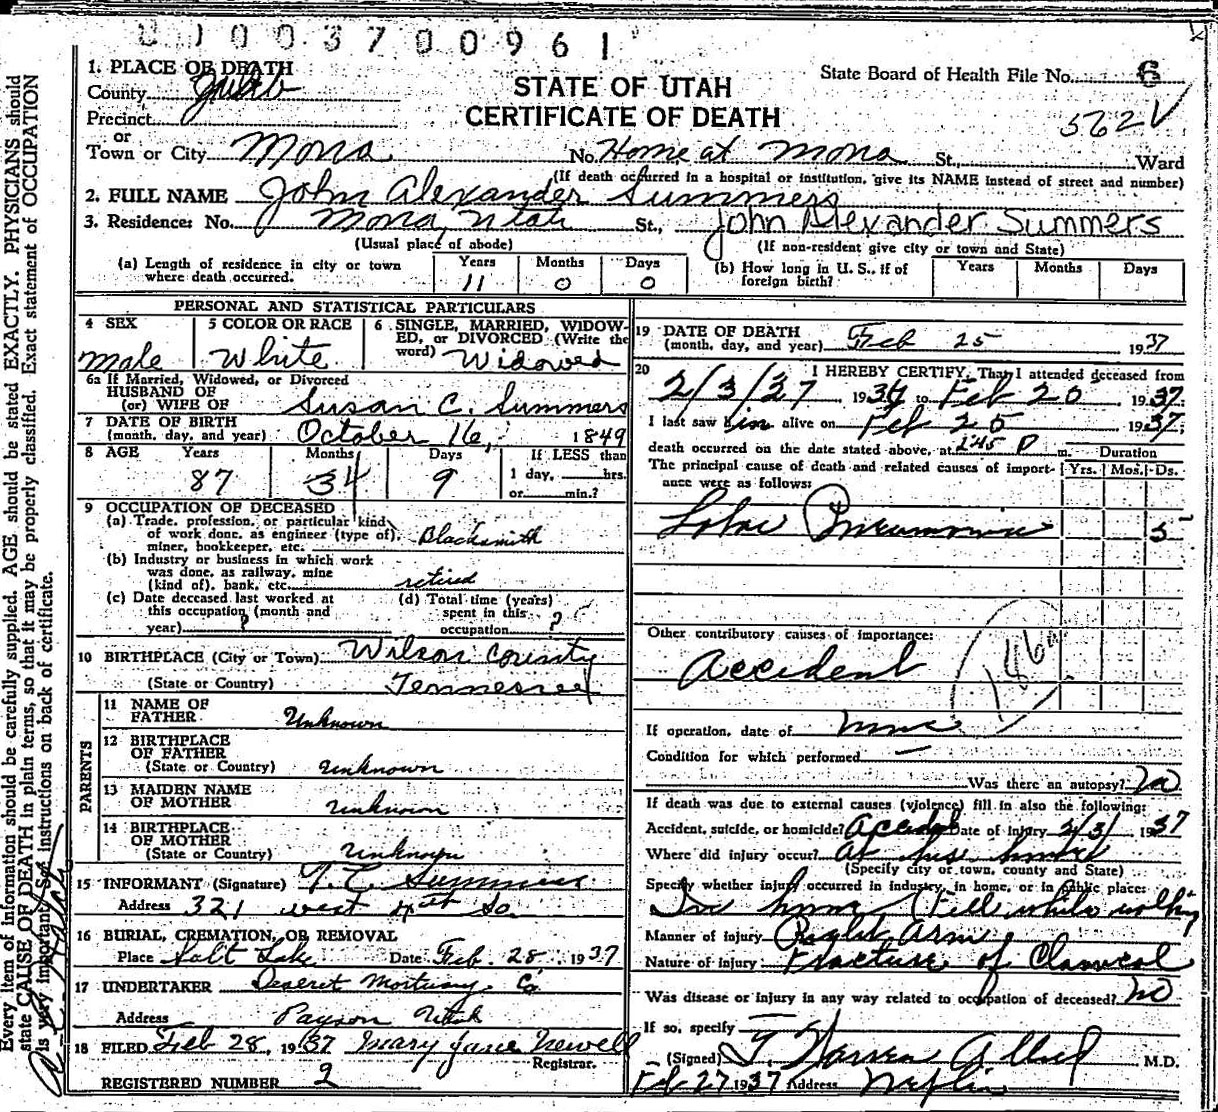 0 1 0 0 3 7 0 0 9 6 1
1. PLACE OF DEATH
County Juab
Precinct
or
Town or City Mona No. Home at Mona St., Ward
STATE OF UTAH
CERTIFICATE OF DEATH
State Board of Health File No. 6
562
(If death occurred in a hospital or institution, give its NAME instead of street and number)
2. FULL NAME John Alexander Summers
3. Residence: No. Mona, Utah St., John Alexander Summers
(Usual place of abode) (If non-resident give city or town and State)
(a) Length of residence in city or town where death occurred. Years 11 Months 0 Days 0
(b) How long in U. S., if of foreign birth? Years Months Days
PERSONAL AND STATISTICAL PARTICULARS
4 SEX Male
5 COLOR OR RACE White
6 SINGLE, MARRIED, WIDOWED, or DIVORCED (Write the word) Widowed
6a If Married, Widowed, or Divorced
HUSBAND OF
(or) WIFE OF Susan C. Summers
7 DATE OF BIRTH
(month, day, and year) October 16, 1849
8 AGE Years 87 Months 4 Days 9
If LESS than
1 day, hrs.
or min.?
9 OCCUPATION OF DECEASED
(a) Trade, profession, or particular kind
of work done, as engineer (type of),
miner, bookkeeper, etc. Blacksmith
(b) Industry or business in which work
was done, as railway, mine
(kind of), bank, etc. retired
(c) Date deceased last worked at
this occupation (month and
year) ?
(d) Total time (years)
spent in this
occupation ?
10 BIRTHPLACE (City or Town) Wilson County
(State or Country) Tennessee
PARENTS
11 NAME OF
FATHER Unknown
12 BIRTHPLACE
OF FATHER
(State or Country) Unknown
13 MAIDEN NAME
OF MOTHER Unknown
14 BIRTHPLACE
OF MOTHER
(State or Country) Unknown
15 INFORMANT (Signature) Summers
Address 321 west 4th So
16 BURIAL, CREMATION, OR REMOVAL
Place Salt Lake Date Feb. 28 1937
17 UNDERTAKER Deseret Mortuary Co
Address Payson Utah
18 FILED Feb 28, 1937 Mary Jane Newell
Registrar.
REGISTERED NUMBER 2
19 DATE OF DEATH
(month, day, and year) Feb 25 1937
20 I HEREBY CERTIFY, That I attended deceased from
2/3/37 1937 to Feb 1937
I last saw him alive on Feb 25 1937;
death occurred on the date stated above, at 2:45 P m. Duration
The principal cause of death and related causes of importance were as follows: Yrs. Mos. Ds.
Lobar Pneumonia 5
Other contributory causes of importance:
Accident
If operation, date of none
Condition for which performed
Was there an autopsy? no
If death was due to external causes (violence) fill in also the following:
Accident, suicide, or homicide? Accident Date of injury 2/3/ 1937
Where did injury occur? At his home
(Specify city or town, county and State)
Specify whether injury occurred in industry, in home, or in public place:
In home (Fell while walking
Manner of injury Right Arm
Nature of injury Fracture of
Was disease or injury in any way related to occupation of deceased? no
If so, specify
(Signed) M.D.
Feb 27 1937 Address Nephi
Every item of information should be carefully supplied. AGE should be stated EXACTLY. PHYSICIANS should
state CAUSE OF DEATH in plain terms, so that it may be properly classified. Exact statement of OCCUPATION
is very important. See instructions on back of certificate.